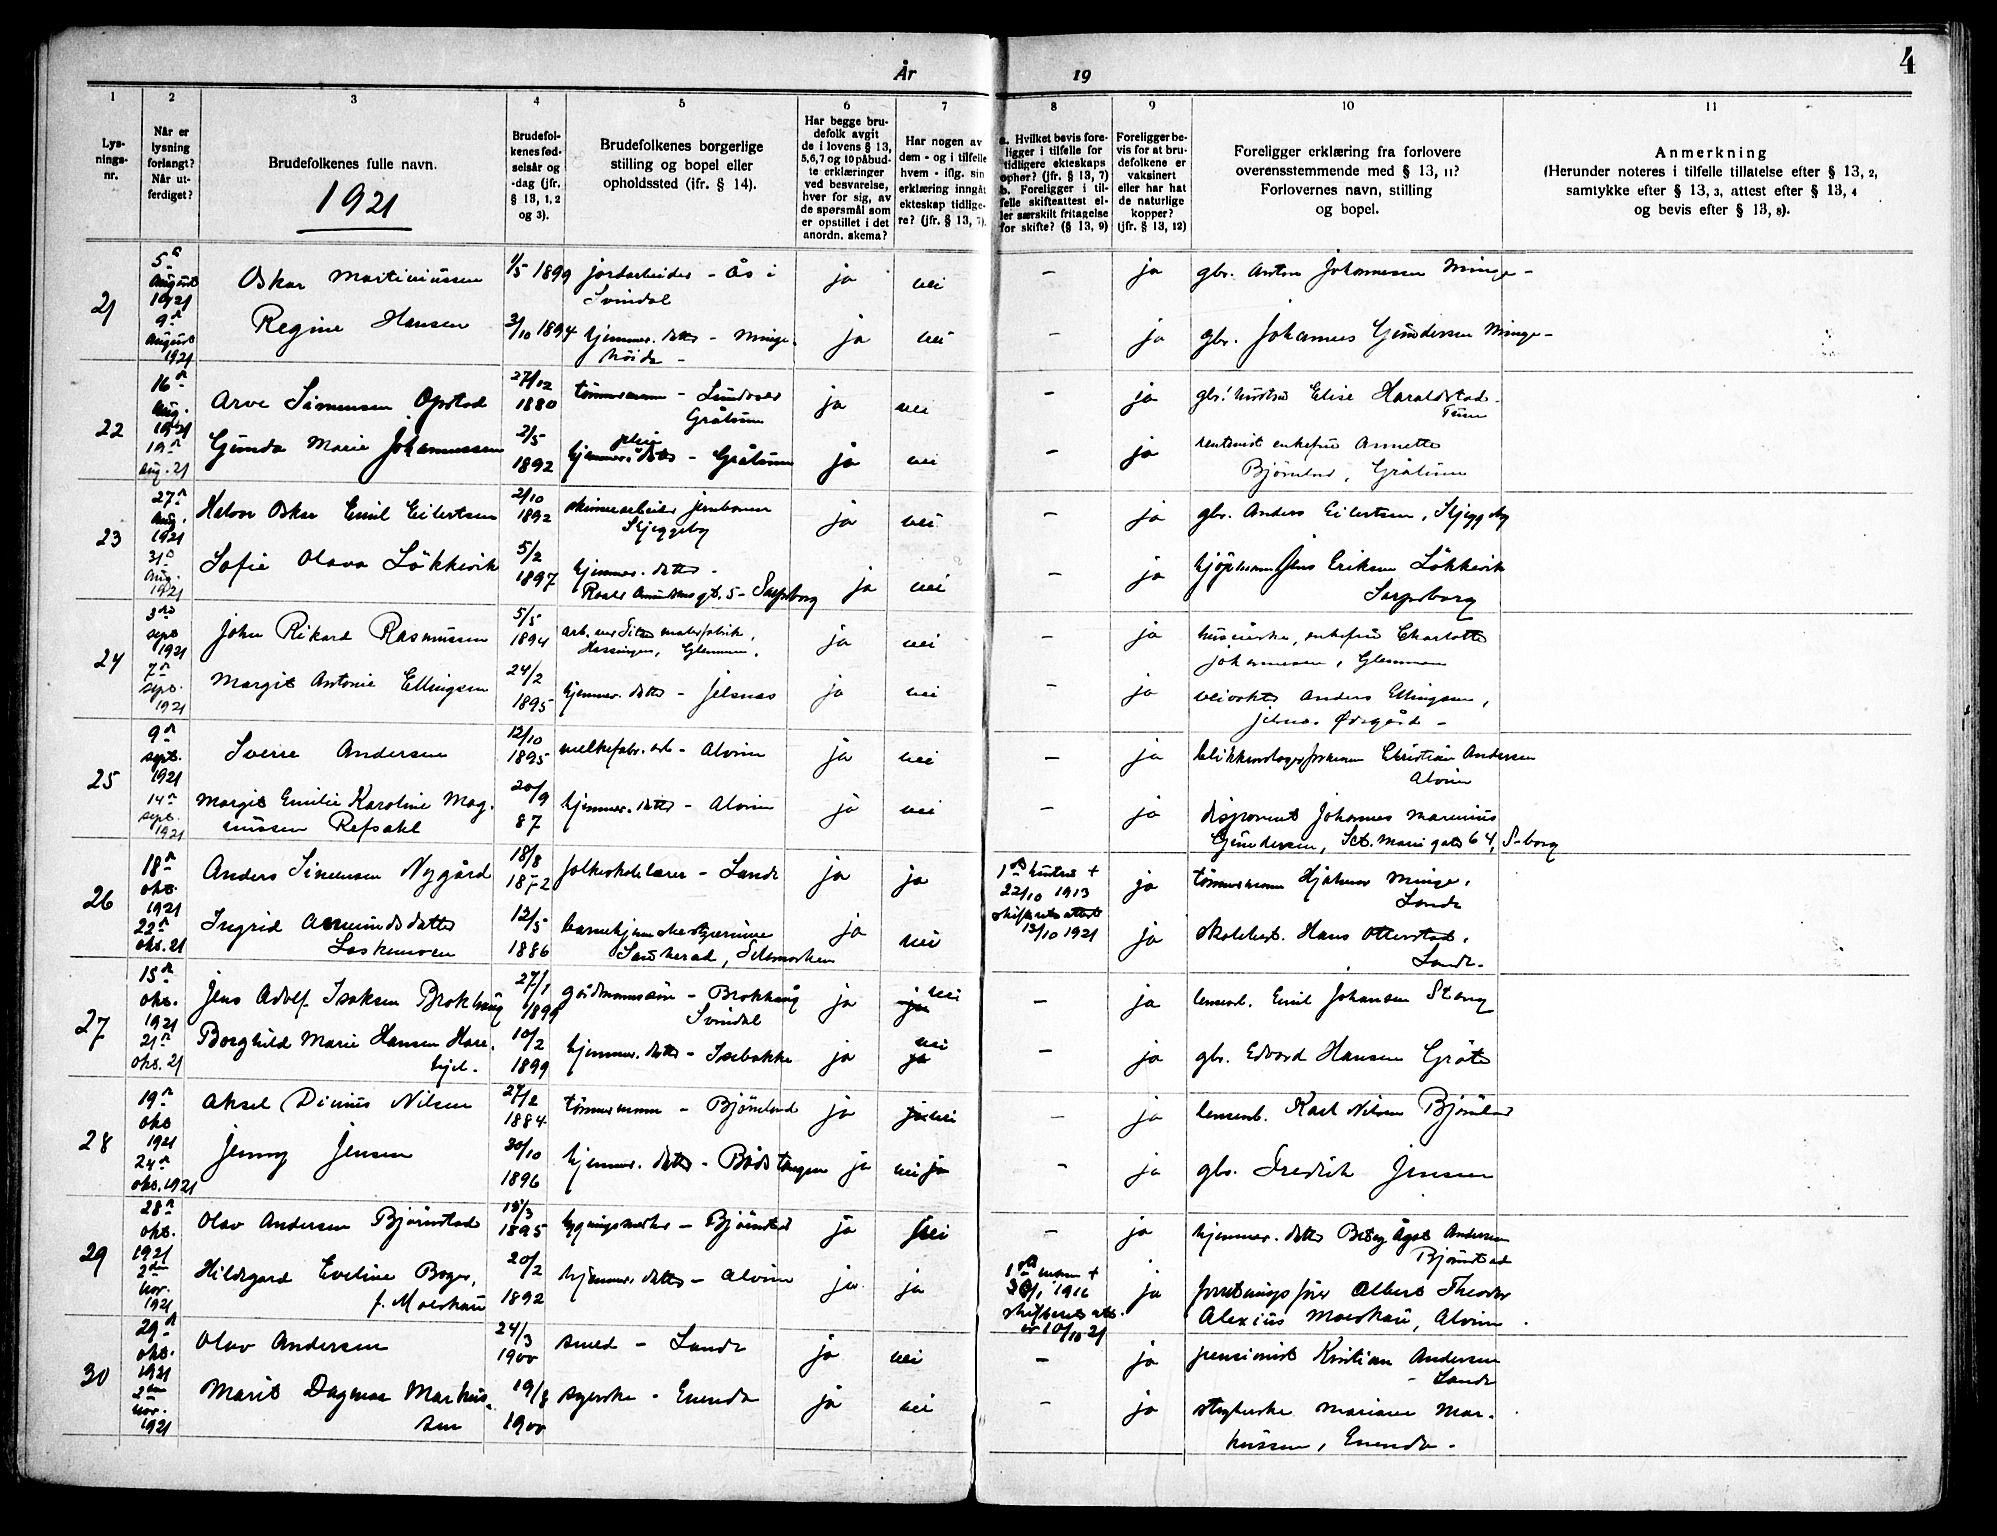 År
19
4
1
2
3
4
5
6
7
8
9
10
11
Lys-
nings-
nr.
Når er
lysning
forlangt?
Når ut-
ferdiget?
Brudefolkenes fulle navn.
1921
Brudefol-
kenes fød-
selsår og
-dag (jfr.
§ 13, 1, 2
og 3).
Brudefolkenes borgerlige
stilling og bopel eller
opholdssted (ifr. § 14).
Har begge bru-
defolk avgit
de i lovens § 13,
5,6,7 og 10 påbud-
te erklæringer
ved besvarelse,
hver for sig, av
de spørsmål som
er opstillet i det
anordn. skema?
Har nogen av
dem - og i tilfelle
hvem - iflg. sin
erklæring inngåt
ekteskap tidlige-
re? (jfr. § 13, 7).
a. Hvilket bevis fore-
ligger i tilfelle for
tidligere ekteskaps
ophør? (jfr. § 13, 7)
b. Foreligger i til-
felle skifteattest el-
ler særskilt fritagelse
for skifte? (§ 13, 9)
Foreligger be-
vis for at bru-
defolkene er
vaksinert
eller har hat
de naturlige
kopper?
(jfr. § 13, 12)
Foreligger erklæring fra forlovere
overensstemmende med § 13, 11?
Forlovernes navn, stilling
og bopel.
Anmerkning
(Herunder noteres i tilfelle tillatelse efter § 13, 2,
samtykke efter § 13, 3, attest efter § 13, 4
og bevis efter § 13, 8).
21
5te
August
1921
Oskar Martiniussen
1/5 1899
jordarbeider - Ås i
Svindal
ja
nei
-
ja
gbr. Anton Johannessen Minge -
9de
August
1921
Regine Hansen
3/10 1894
hjemmev. datter - Minge-
ja
nei
-
ja
gbr. Johannes Gundersen Minge -
22
16de
Aug.
1921
Arve Simensen Opstad
27/12
1880
tømmermann -
Grålum
ja
nei
-
ja
gbr. hustru Elise Haraldstad -
Tune
19de
Aug. 21
Gunda Marie Johannessen
2/5
1892
pleie
hjemmev. datter - Grålum
ja
nei
ja
rentenist enkefru Annette
Bjørnland, Grålum
23
27de
Aug.
1921
Halvor Oskar Emil Eilertsen
2/10
1892
skinnearbeider jernbanen
Skjeggeby
ja
nei
-
ja
gbr. Anders Eilertsen, Skjeggeby
31te
Aug.
1921
Sofie Olava Løkkevik
5/2
1897
hjemmev. datter -
Roald Amundsens gt. 5 - Sarpsborg
ja
nei
-
ja
kjøpmann Jens Eriksen Løkkevik
Sarpsborg
24
3die
sept.
1921
John Rikard Rasmussen
5/5
1894
arb. ved
, Glemmen.
ja
nei
-
ja
huseierske, enkefru Charlotte
Johannesen, Glemmen
7de
sept.
1921
Margit Antonie Ellingsen
24/2
1895
hjemmev. datter - Jelsnæs
ja
nei
-
ja
veivokter Anders Ellingsen,
Jelsnæs Ødegård -
25
9de
sept.
1921
Sverre Andersen
12/10
1895
melkefabr. arb - Alvim
ja
nei
-
ja
Christian Andersen
Alvim
14de
sept.
1921
Margit Emilie Karoline Mag-
nussen Refsahl
20/9
87
hjemmev. datter - Alvim
ja
nei
-
ja
disponent Johannes Marenius
Gundersen, Sct. Marie gate 64, S-borg
26
18de
okt.
1921
Anders Simensen Nygård
18/8
1872
folkeskolelærer - Lande
ja
ja
1ste hustru +
22/10 1913
skifterets attest
13/10 1921
ja
tømmermann Hjalmar Minge,
Lande
22de
okt. 21
Ingrid Aamundsdatter
12/5
1886
barnehjemsbestyrerinne
Sauherad, Telemarken
ja
nei
ja
skolebest. Hans Otterstad,
Lande.
27
15de
okt.
1921
Jens Adolf Isaksen Brokhaug
27/1
1899
gårdmannssøn - Brokhaug
Svindal
ja
ja nei
-
ja
lensm. Emil Johansen Stang
21de
okt. 21
Borghild Marie Hansen Hare-
hjel.
10/2
1899
hjemmev. datter - Isebakke
ja
nei
ja
-
ja
gbr. Edvard Hansen Gråte
28
19de
okt
1921
Aksel Dinius Nilsen
27/2
1884
tømmermann - Bjørnland
ja
ja nei
-
ja
Karl Nilsen Bjørnland
24de
okt. 1921
Jenny Jensen
20/10
1896
hjemmev. datter - Bådstangen
ja
nei ja
-
ja
gbr. Fredrik Jensen
29
28de
okt.
1921
Olav Andersen Bjørnstad
15/3
1895
bygningssnekker - Bjørnstad
ja
nei
-
ja
hjemmev. datter Betsy Ågot Andersen
Bjørnstad
2den
nov.
1921
Hildegard Eveline Boger,
f. Moeskau
20/2
1892
hjemmev. datter - Alvim
ja
ja
1ste mann +
30/1 1916
skifterets att.
av 10/10 21
ja
forretningsfører Albert Theodor
Alexius Moeskau, Alvim
30
29de
okt.
1921
Olav Andersen
24/3
1900
smed - Lande
ja
nei
-
ja
pensionist Kristian Andersen
- Lande
2den
nov.
1921
Marit Dagmar Markus-
sen
19/8
1900
syerske - Enenda
ja
nei
-
ja
strykerske Mariane Mar-
kussen, Enenda -